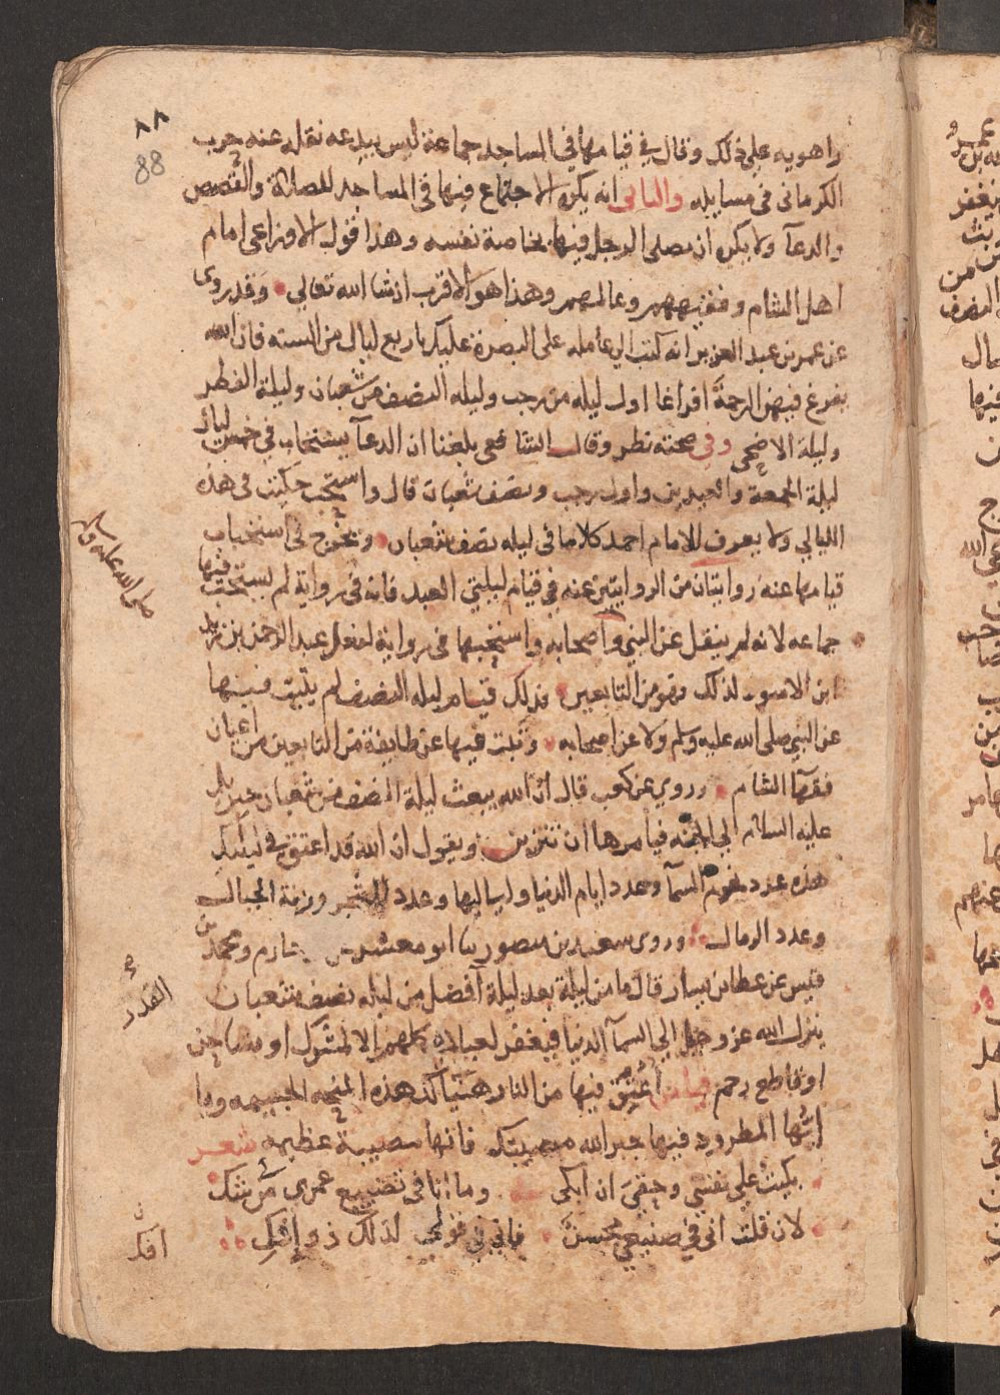 ٨٨
88
راهويه على ذلك وقال في قيامها في المساجد جماعة ليس ببدعه نقله عنه حرب
الكرماني في مسايله والثاني انه يكره الاجتماع فيها في المساجد للصلاة والقصص
والدعآ ولا يكره ان يصلي الرجل فيها بخاصة نفسه وهذا قول الاوزاعي امام
اهل الشام وفقيههم وعالمهم وهذا هو الاقرب ان شا الله تعالى وقد روي
عن عمر بن عبد العزيز انه كتب الى عامله على البصرة عليك باربع ليال من السنه فان الله
يفرغ فيهن الرحمة افراغا اول ليله من رجب وليله النصف من شعبان وليلة الفطر
وليلة الاضحى وفي صحته نظر وقال الشافعي بلغنا ان الدعآ يستجاب في خمس ليال
ليلة الجمعة والعيدين واول رجب ونصف شعبان قال واستحب كل ما حكيت في هذه
الليالي ولا يعرف للامام احمد كلاما في ليله نصف شعبان ويخرج في استحباب
قيامها عنه روايتان من الروايتين عنه في قيام ليلتي العيد فانه في رواية لم يستحب قيامها
جماعه لانه لم ينقل عن النبي واصحابه واستحبها في رواية لفعل عبد الرحمن بن يزيد
ابن الاسود لذلك وهو من التابعين فذلك قيام ليله النصف لم يثبت فيها
عن النبي صلى الله عليه وسلم ولا عن اصحابه وثبت فيها عن طايفة من التابعين من اعيان
فقهآ الشام وروي عن كعب قال ان الله يبعث ليلة النصف من شعبان جبريل
عليه السلام الى الجنه فيامرها ان تتزين ويقول ان الله قد اعتق في ليلتك
هذه عدد نجوم السمآ وعدد ايام الدنيا ولياليها وعدد الشجر وزنة الجبال
وعدد الرمال وروى سعيد بن منصور ثنا ابو معشر عن حازم ومحمد بن
قيس عن عطا بن يسار قال ما من ليلة بعد ليلة افضل من ليله نصف شعبان
ينزل الله عز وجل الى السمآ الدنيا فيغفر لعباده كلهم الا لمشرك او مشاحن
او قاطع رحم فيا من اعتق فيها من النار هنيا لك هذه المنحه الجسيمه ويا
ايها المطرود فيها جبر الله مصيبتك فانها مصيبة عظيمة شعر
بكيت على نفسي وحق ان ابكي وما انا في تضييع عمري من شك
لان قلت اني في صنيعي محسن فاني في قولي لذلك ذو افك
صلى الله عليه وسلم
القدر
افك